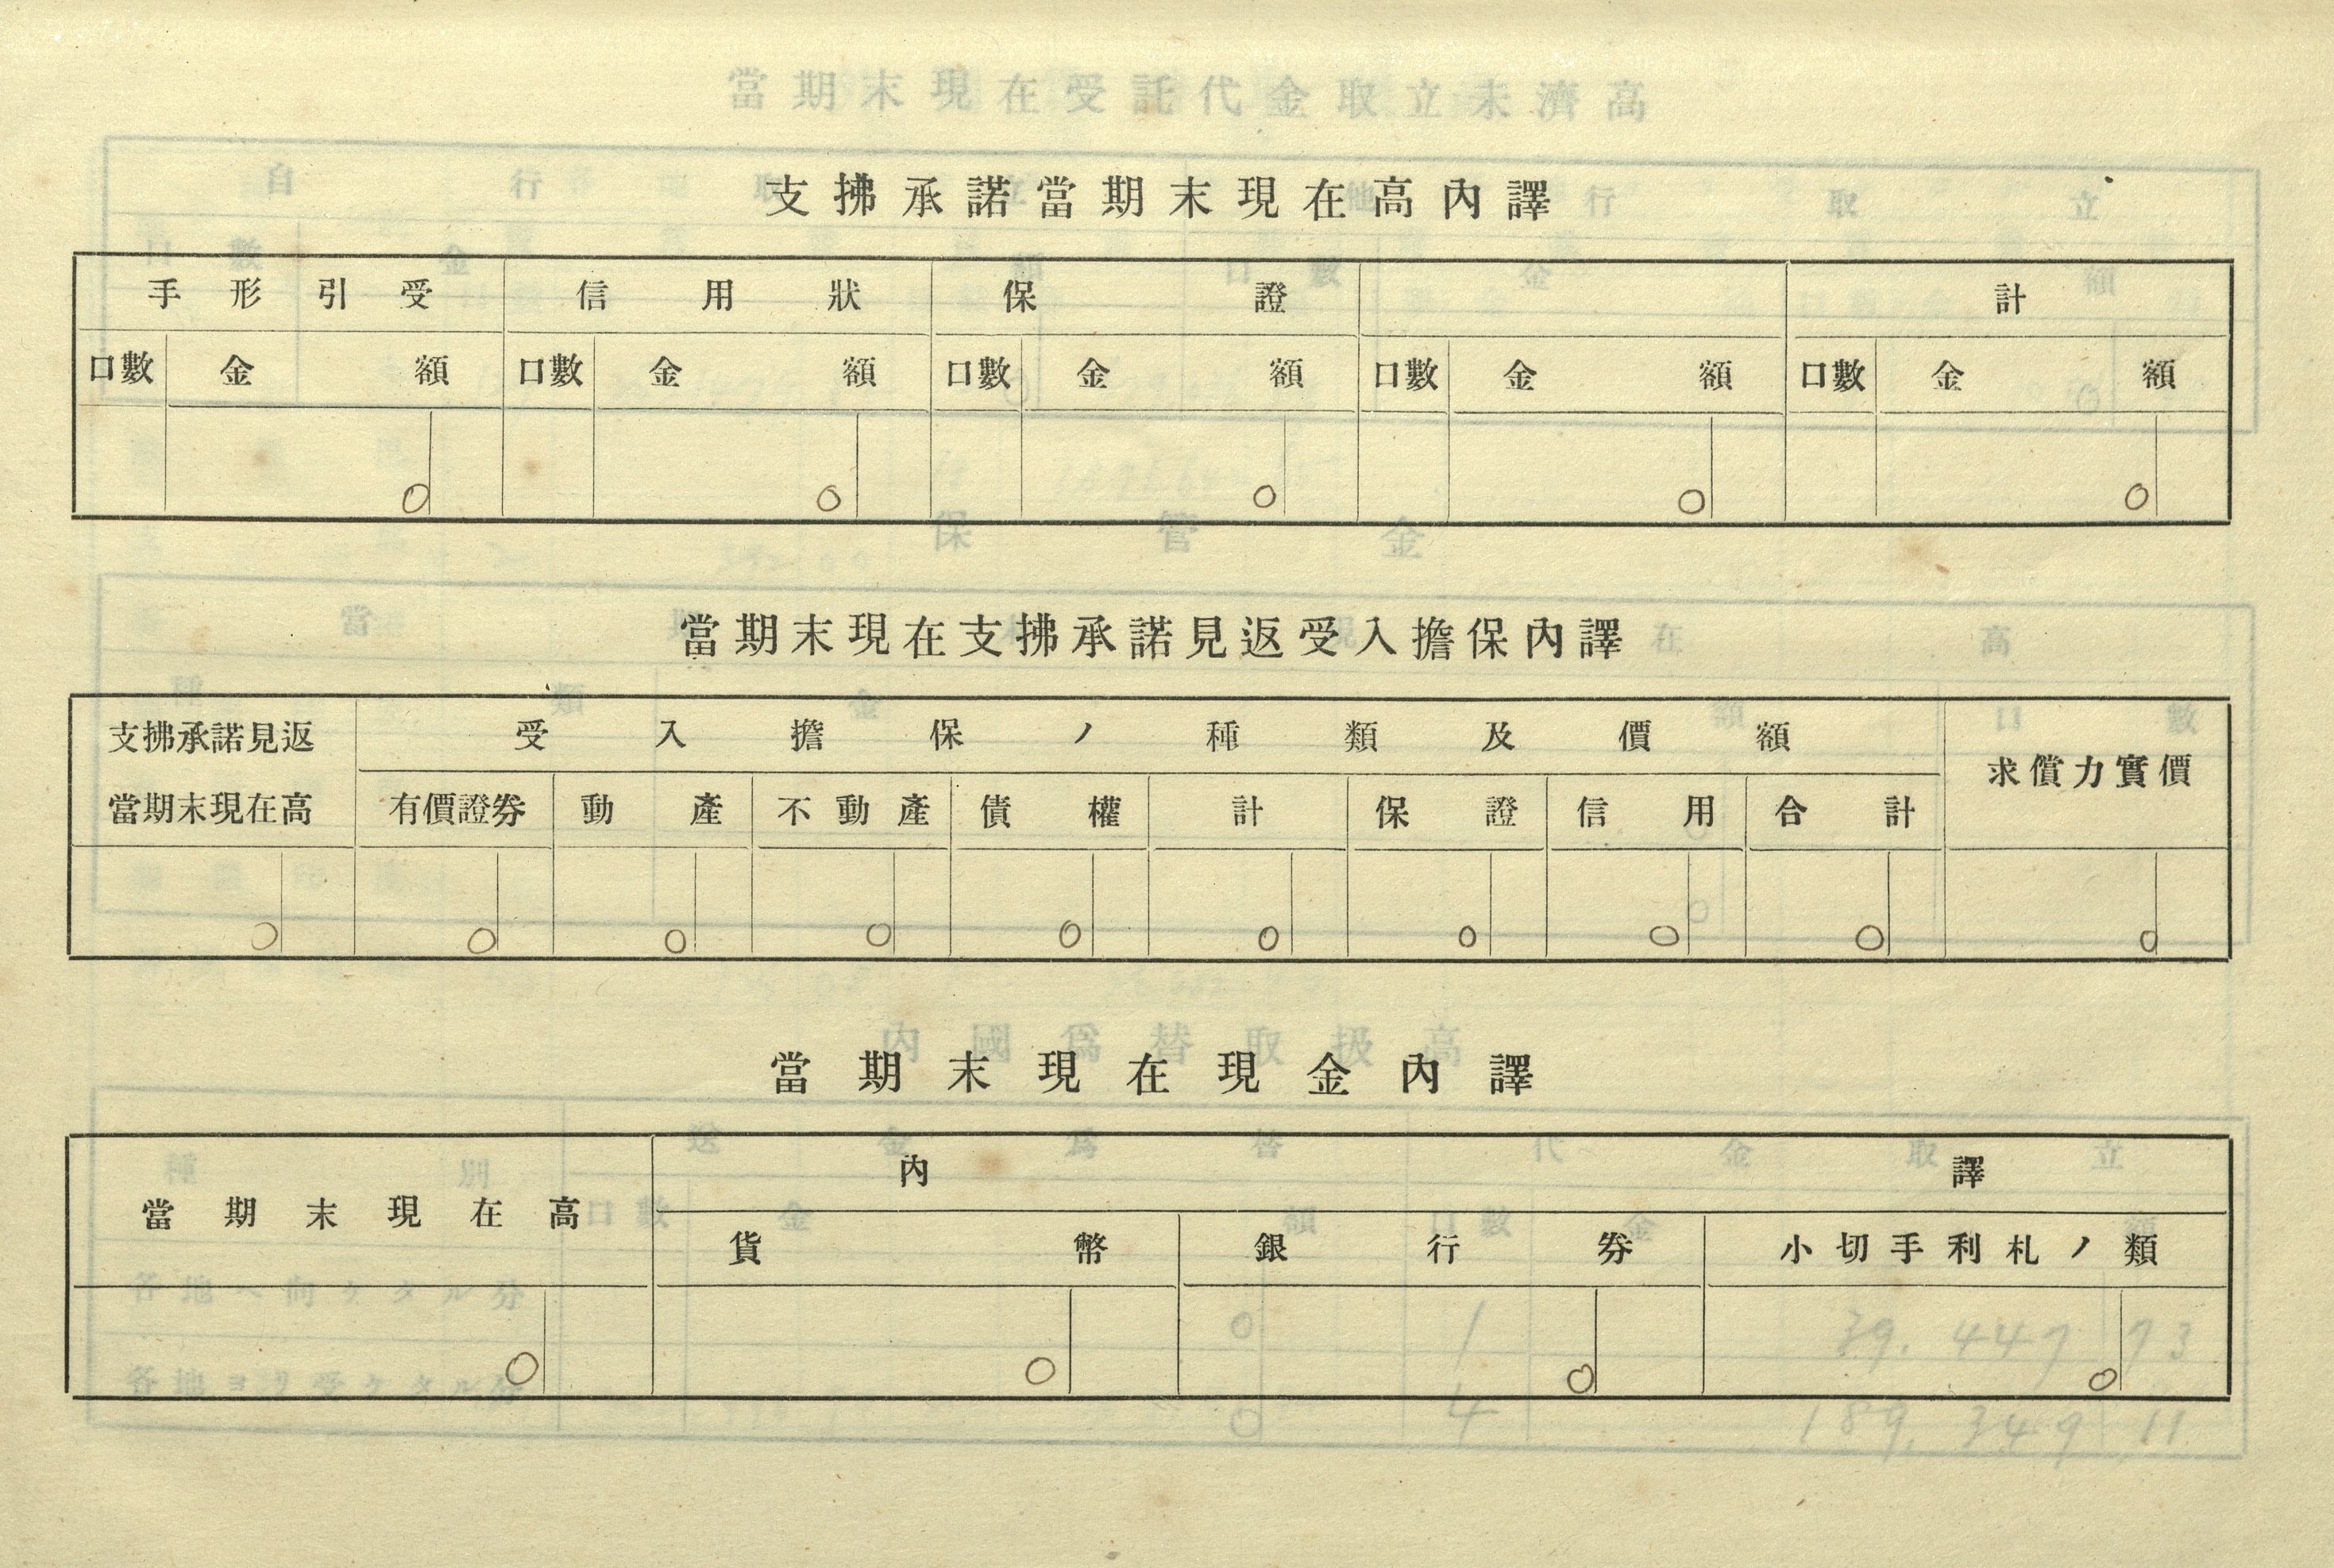 支拂承諾當期末現在高內譯
手形引受 信用狀 保證 計
口數 金額 口數 金額 口數 金額 口數 金額 口數 金額
0 0 0 0 0
當期末現在支拂承諾見返受入擔保內譯
支拂承諾見返 受入擔保ノ種類及價額
求償力實價
當期末現在高 有價證券 動產 不動產 債權 計 保證 信用 合計
0 0 0 0 0 0 0 0 0 0
當期末現在現金內譯
內譯
當期末現在高
貨幣 銀行券 小切手利札ノ類
0 0 0 0